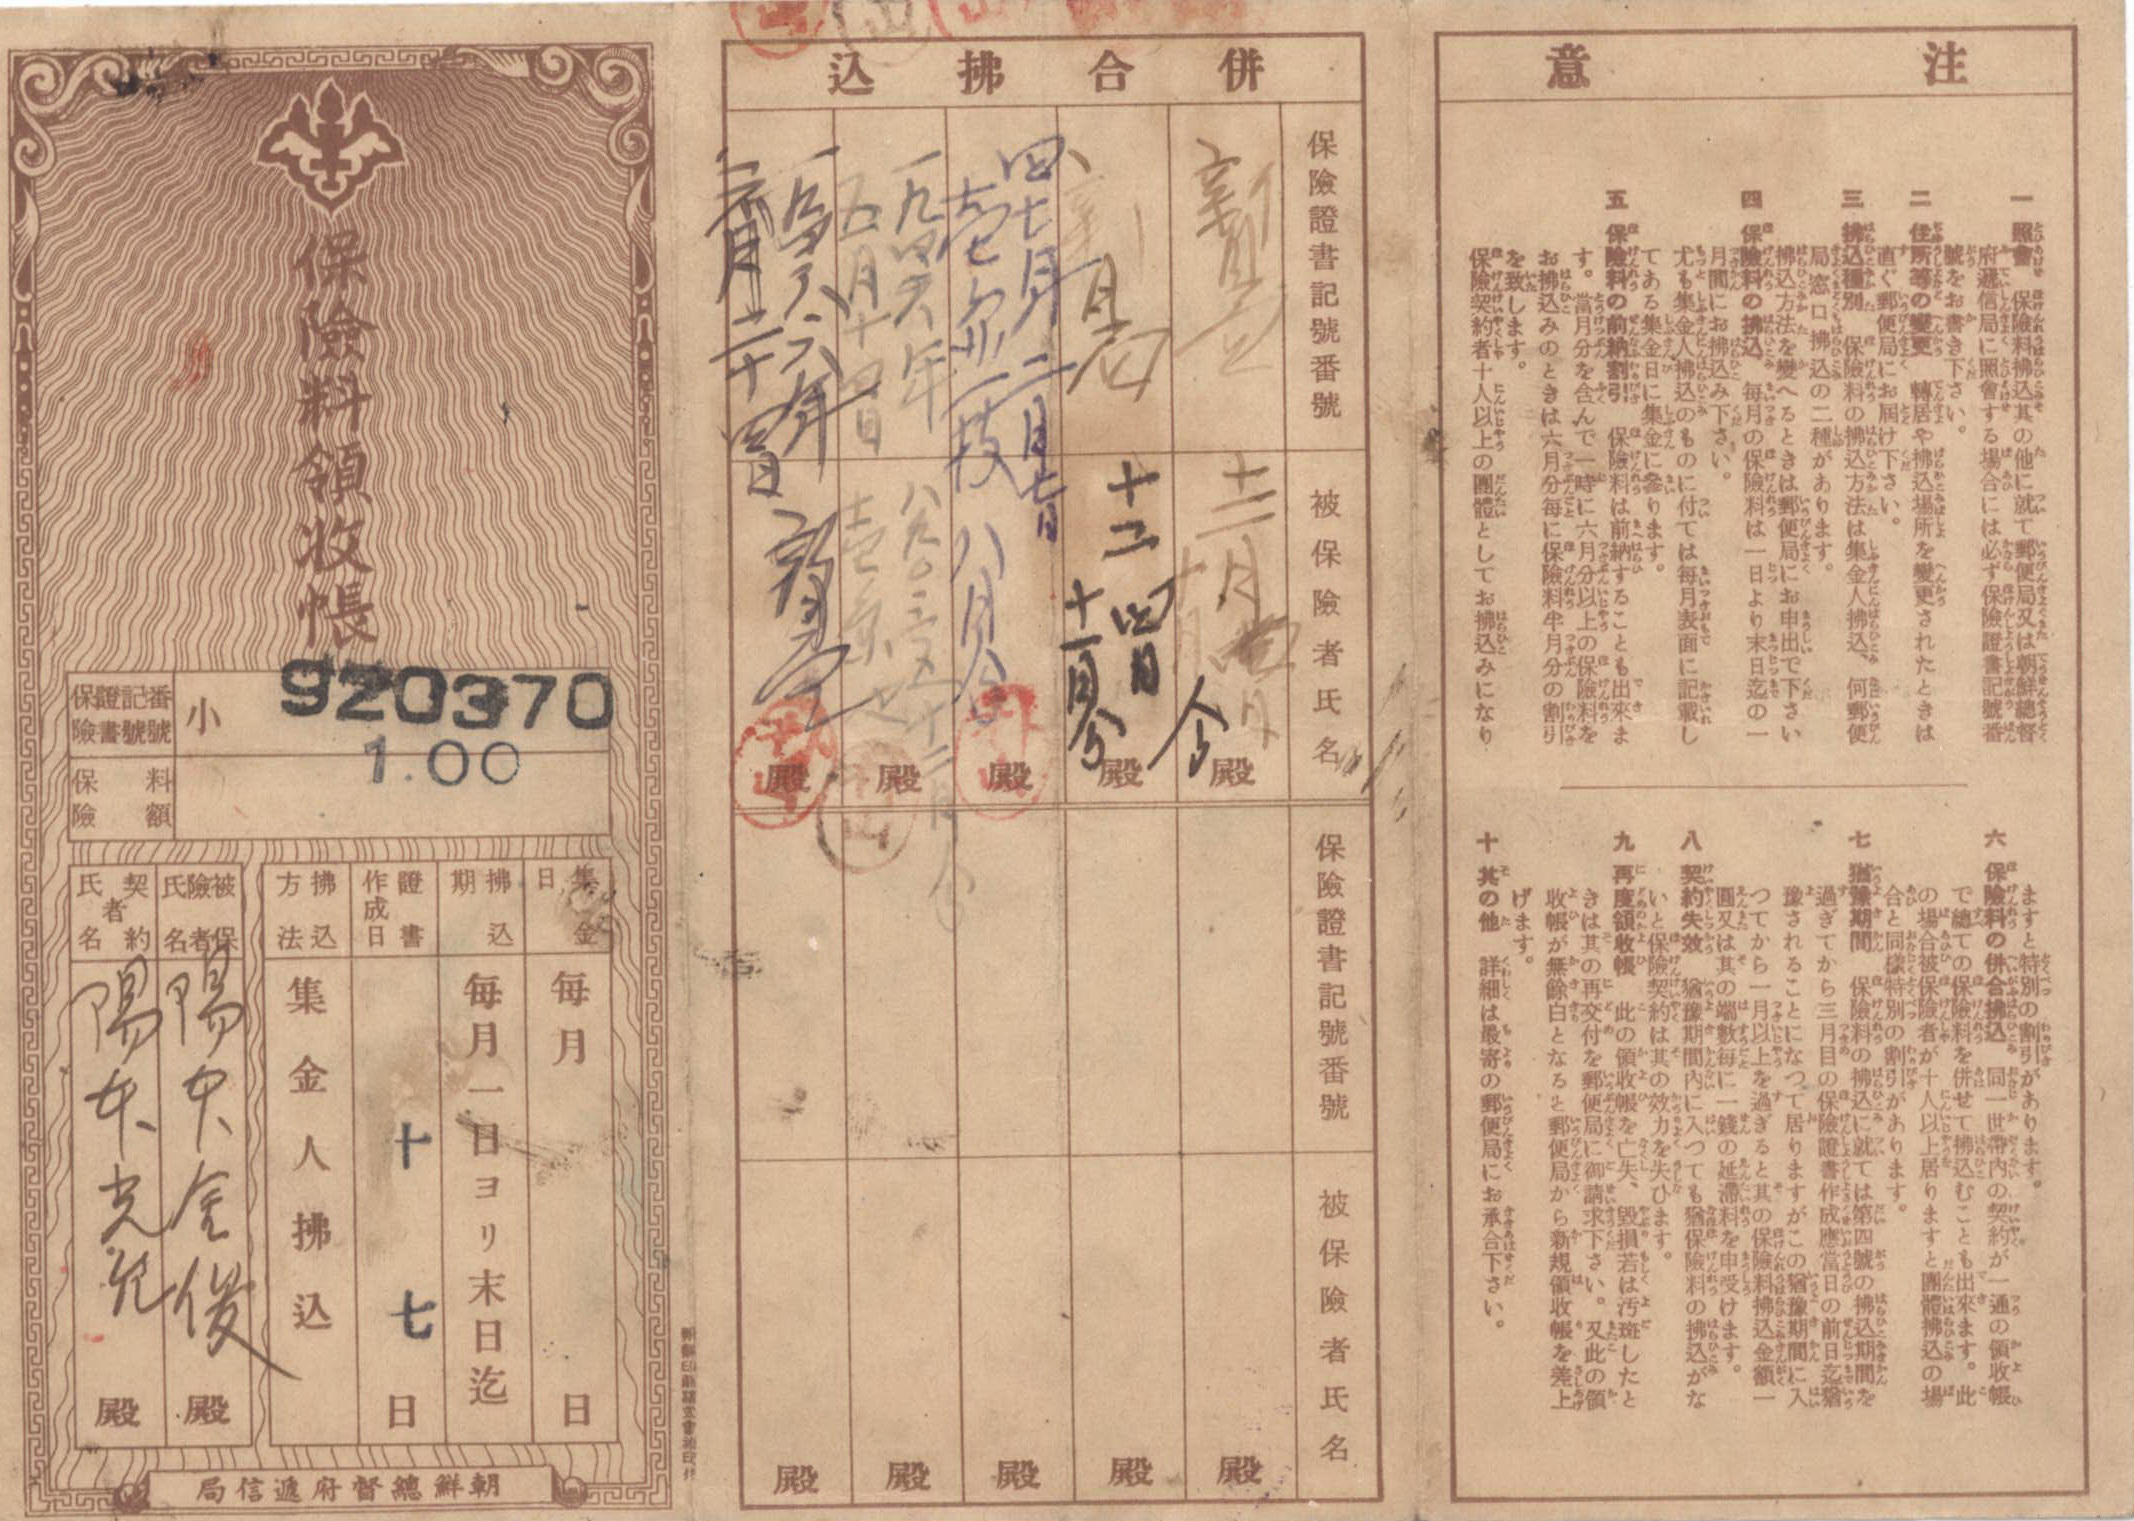 保險料領收帳
保險證書記號番號
小
920370
保險料額
1.00
集金日
每月 日
拂込期
每月一日ヨリ末日迄
證書作成日
十七日
拂込方法
集金人拂込
被保險者氏名
殿
契約者氏名
殿
朝鮮總督府遞信局
併合拂込
保險證書記號番號
被保險者氏名
十二月
十二
十一月分
四七月二月七日
八月分
一九四六年
五月十四日
一九四六年
殿
殿
殿
殿
殿
保險證書記號番號
被保險者氏名
殿
殿
殿
殿
殿
注意
一 照會 保險料拂込其の他に就て郵便局又は朝鮮總督
府遞信局に照會する場合には必ず保險證書記號番
號をお書き下さい。
二 住所等の變更 轉居や拂込場所を變更されたときは
直ぐ郵便局にお屆け下さい。
三 拂込種別 保險料の拂込方法は集金人拂込、何郵便
局窓口拂込の二種があります。
拂込方法を變へるときは郵便局にお申出で下さい
四 保險料の拂込 每月の保險料は一日より末日迄の一
月間にお拂込み下さい。
尤も集金人拂込のものに付ては每月表面に記載し
てある集金日に集金に參ります。
五 保險料の前納割引 保險料は前納することも出來ま
す。當月分を含んで一時に六月分以上の保險料を
お拂込みのときは六月分每に保險料半月分の割引
を致します。
保險契約者十人以上の團體としてお拂込みになり
ますと特別の割引があります。
六 保險料の併合拂込 同一世帶內の契約が一通の領收帳
で總ての保險料を併せて拂込むことも出來ます。此
の場合被保險者が十人以上居りますと團體拂込の場
合と同樣特別の割引があります。
七 猶豫期間 保險料の拂込に就ては第四號の拂込期間を
過ぎてから三月目の保險證書作成應當日の前日迄猶
豫されることになつて居りますがこの猶豫期間に入
つてから一月以上を過ぎると其の保險料拂込金額一
圓又は其の端數每に一錢の延滯料を申受けます。
八 契約失效 猶豫期間內に入つても猶保險料の拂込がな
いと保險契約は其の效力を失ひます。
九 再度領收帳 此の領收帳を亡失、毀損若は汚斑したと
きは其の再交付を郵便局に御請求下さい。又此の領
收帳が無餘白となると郵便局から新規領收帳を差上
げます。
十 其の他 詳細は最寄の郵便局にお承合下さい。